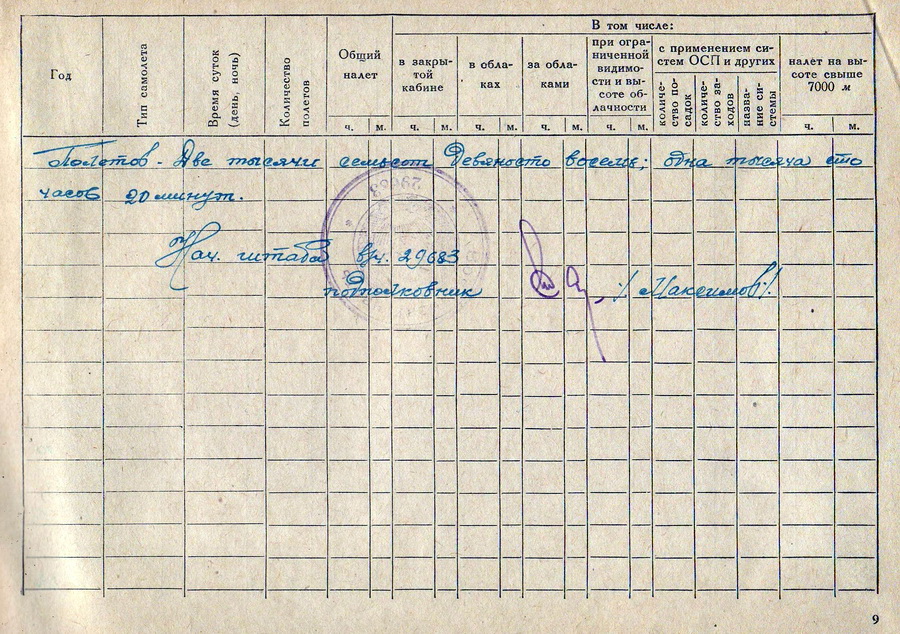 Год
Тип самолета
Время суток
(день, ночь)
Количество
полетов
Общий
налет
В том числе:
в закры-
той
кабине
в обла-
ках
за обла-
ками
при огра-
ниченной
видимо-
сти и вы-
соте об-
лачности
с применением си-
стем ОСП и других
количе-
ство по-
садок
количе-
ство за-
ходов
назва-
ние си-
стемы
налет на вы-
соте свыше
7000 м
ч. м. ч. м. ч. м. ч. м. ч. м. ч. м.
Полетов - Две тысячи семьсот девяносто восемь; одна тысяча сто
часов 20 минут.
Нач. штаба в/ч. 29683
подполковник /Максимов/.
29683
9